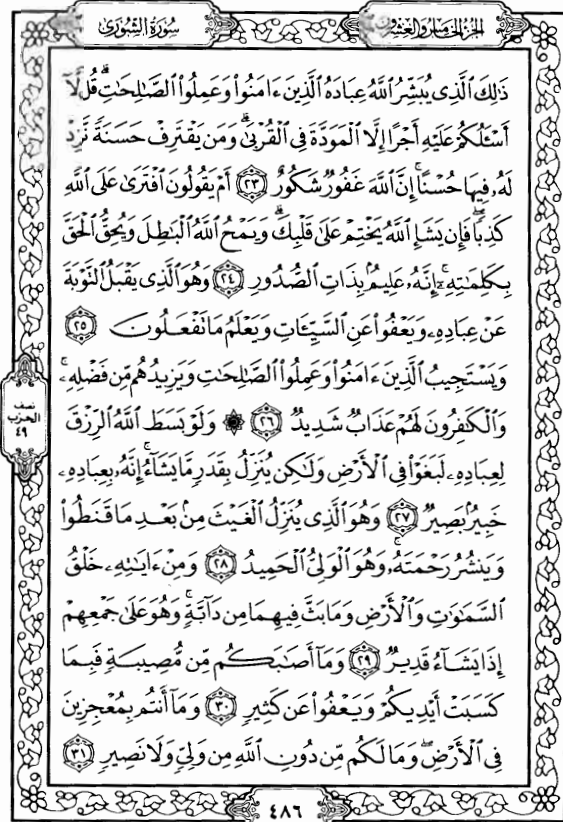 سُورَةُ الشُّورَىٰ
الجُزْءُ الخَامِسُ وَالعِشْرُونَ
ذَٰلِكَ ٱلَّذِى يُبَشِّرُ ٱللَّهُ عِبَادَهُ ٱلَّذِينَ ءَامَنُوا۟ وَعَمِلُوا۟ ٱلصَّـٰلِحَـٰتِ ۗ قُل لَّآ
أَسْـَٔلُكُمْ عَلَيْهِ أَجْرًا إِلَّا ٱلْمَوَدَّةَ فِى ٱلْقُرْبَىٰ ۗ وَمَن يَقْتَرِفْ حَسَنَةً نَّزِدْ
لَهُۥ فِيهَا حُسْنًا ۚ إِنَّ ٱللَّهَ غَفُورٌ شَكُورٌ ٢٣ أَمْ يَقُولُونَ ٱفْتَرَىٰ عَلَى ٱللَّهِ
كَذِبًا ۖ فَإِن يَشَإِ ٱللَّهُ يَخْتِمْ عَلَىٰ قَلْبِكَ ۗ وَيَمْحُ ٱللَّهُ ٱلْبَـٰطِلَ وَيُحِقُّ ٱلْحَقَّ
بِكَلِمَـٰتِهِۦٓ ۚ إِنَّهُۥ عَلِيمٌۢ بِذَاتِ ٱلصُّدُورِ ٢٤ وَهُوَ ٱلَّذِى يَقْبَلُ ٱلتَّوْبَةَ
عَنْ عِبَادِهِۦ وَيَعْفُوا۟ عَنِ ٱلسَّيِّـَٔاتِ وَيَعْلَمُ مَا تَفْعَلُونَ ٢٥
وَيَسْتَجِيبُ ٱلَّذِينَ ءَامَنُوا۟ وَعَمِلُوا۟ ٱلصَّـٰلِحَـٰتِ وَيَزِيدُهُم مِّن فَضْلِهِۦ ۚ
وَٱلْكَـٰفِرُونَ لَهُمْ عَذَابٌ شَدِيدٌ ٢٦ ۞ وَلَوْ بَسَطَ ٱللَّهُ ٱلرِّزْقَ
لِعِبَادِهِۦ لَبَغَوْا۟ فِى ٱلْأَرْضِ وَلَـٰكِن يُنَزِّلُ بِقَدَرٍ مَّا يَشَآءُ ۚ إِنَّهُۥ بِعِبَادِهِۦ
خَبِيرٌۢ بَصِيرٌ ٢٧ وَهُوَ ٱلَّذِى يُنَزِّلُ ٱلْغَيْثَ مِنۢ بَعْدِ مَا قَنَطُوا۟
وَيَنشُرُ رَحْمَتَهُۥ ۚ وَهُوَ ٱلْوَلِىُّ ٱلْحَمِيدُ ٢٨ وَمِنْ ءَايَـٰتِهِۦ خَلْقُ
ٱلسَّمَـٰوَٰتِ وَٱلْأَرْضِ وَمَا بَثَّ فِيهِمَا مِن دَآبَّةٍ ۚ وَهُوَ عَلَىٰ جَمْعِهِمْ
إِذَا يَشَآءُ قَدِيرٌ ٢٩ وَمَآ أَصَـٰبَكُم مِّن مُّصِيبَةٍ فَبِمَا
كَسَبَتْ أَيْدِيكُمْ وَيَعْفُوا۟ عَن كَثِيرٍ ٣٠ وَمَآ أَنتُم بِمُعْجِزِينَ
فِى ٱلْأَرْضِ ۖ وَمَا لَكُم مِّن دُونِ ٱللَّهِ مِن وَلِىٍّ وَلَا نَصِيرٍ ٣١
نصف
الحزب
٤٩
٤٨٦